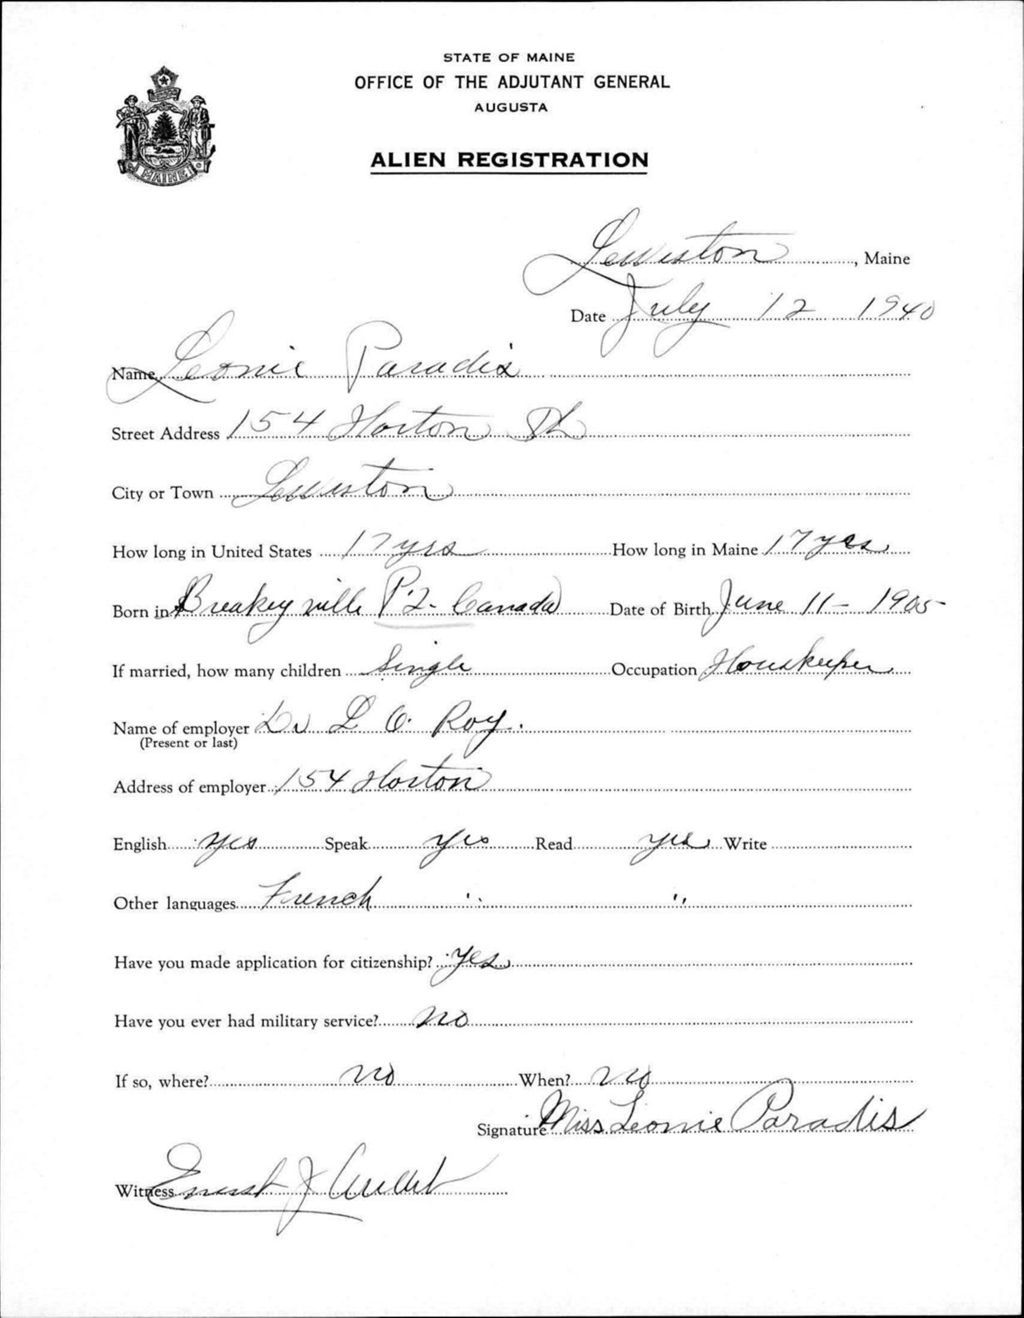 STATE OF MAINE
OFFICE OF THE ADJUTANT GENERAL
AUGUSTA
ALIEN REGISTRATION
MAINE
Lewiston, Maine
Date July 12 1940
Name Leonie Paradis
Street Address 154 Horton St
City or Town Lewiston
How long in United States 17 yrs How long in Maine 17 yrs
Born in Breakeyville P.Q. Canada Date of Birth June 11 - 1905
If married, how many children Single Occupation Houskeeper
Name of employer Dr L O. Roy.
(Present or last)
Address of employer 154 Horton
English yes Speak yes Read yes Write
Other languages French " "
Have you made application for citizenship? Yes
Have you ever had military service? no
If so, where? no When? no
Signature Miss. Leonie Paradis
Witness Ernest J